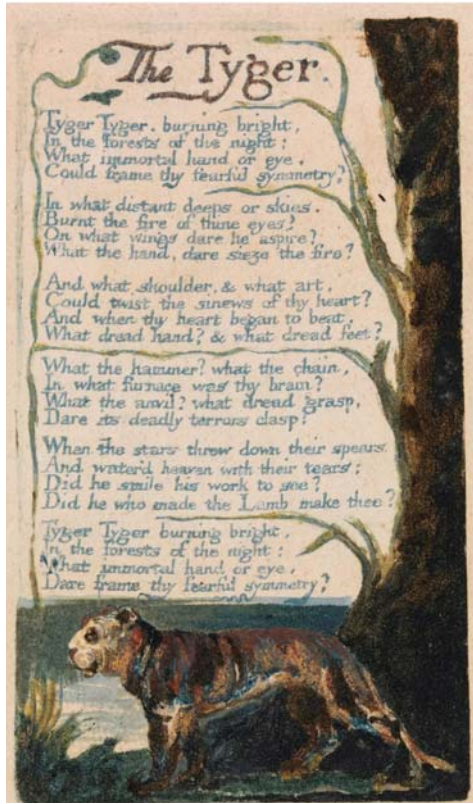 The Tyger.
Tyger Tyger. burning bright,
In the forests of the night:
What immortal hand or eye.
Could frame thy fearful symmetry?
In what distant deeps or skies.
Burnt the fire of thine eyes?
On what wings dare he aspire?
What the hand, dare sieze the fire?
And what shoulder, & what art,
Could twist the sinews of thy heart?
And when thy heart began to beat.
What dread hand? & what dread feet?
What the hammer? what the chain,
In what furnace was thy brain?
What the anvil? what dread grasp,
Dare its deadly terrors clasp?
When the stars threw down their spears
And water'd heaven with their tears:
Did he smile his work to see?
Did he who made the Lamb make thee?
Tyger Tyger burning bright,
In the forests of the night:
What immortal hand or eye,
Dare frame thy fearful symmetry?